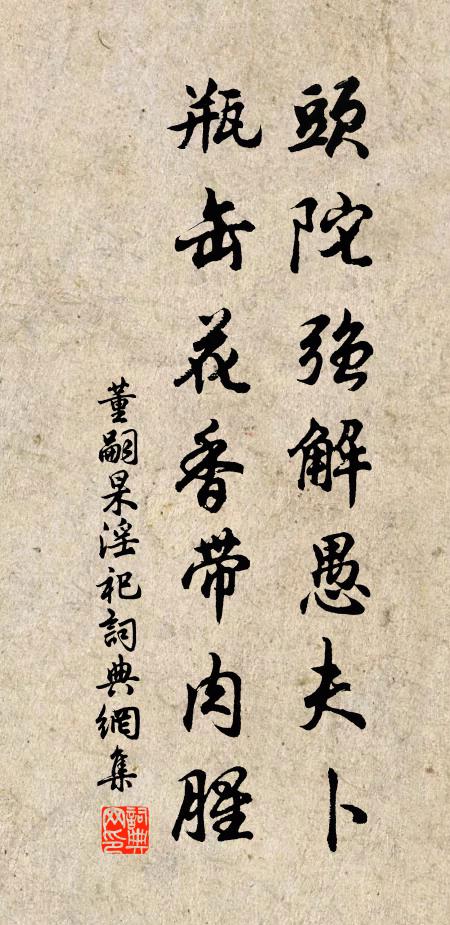 頭陀強解愚夫卜
瓶缶花香帶肉腥
董嗣杲淫祀詞典網集
詞典网印